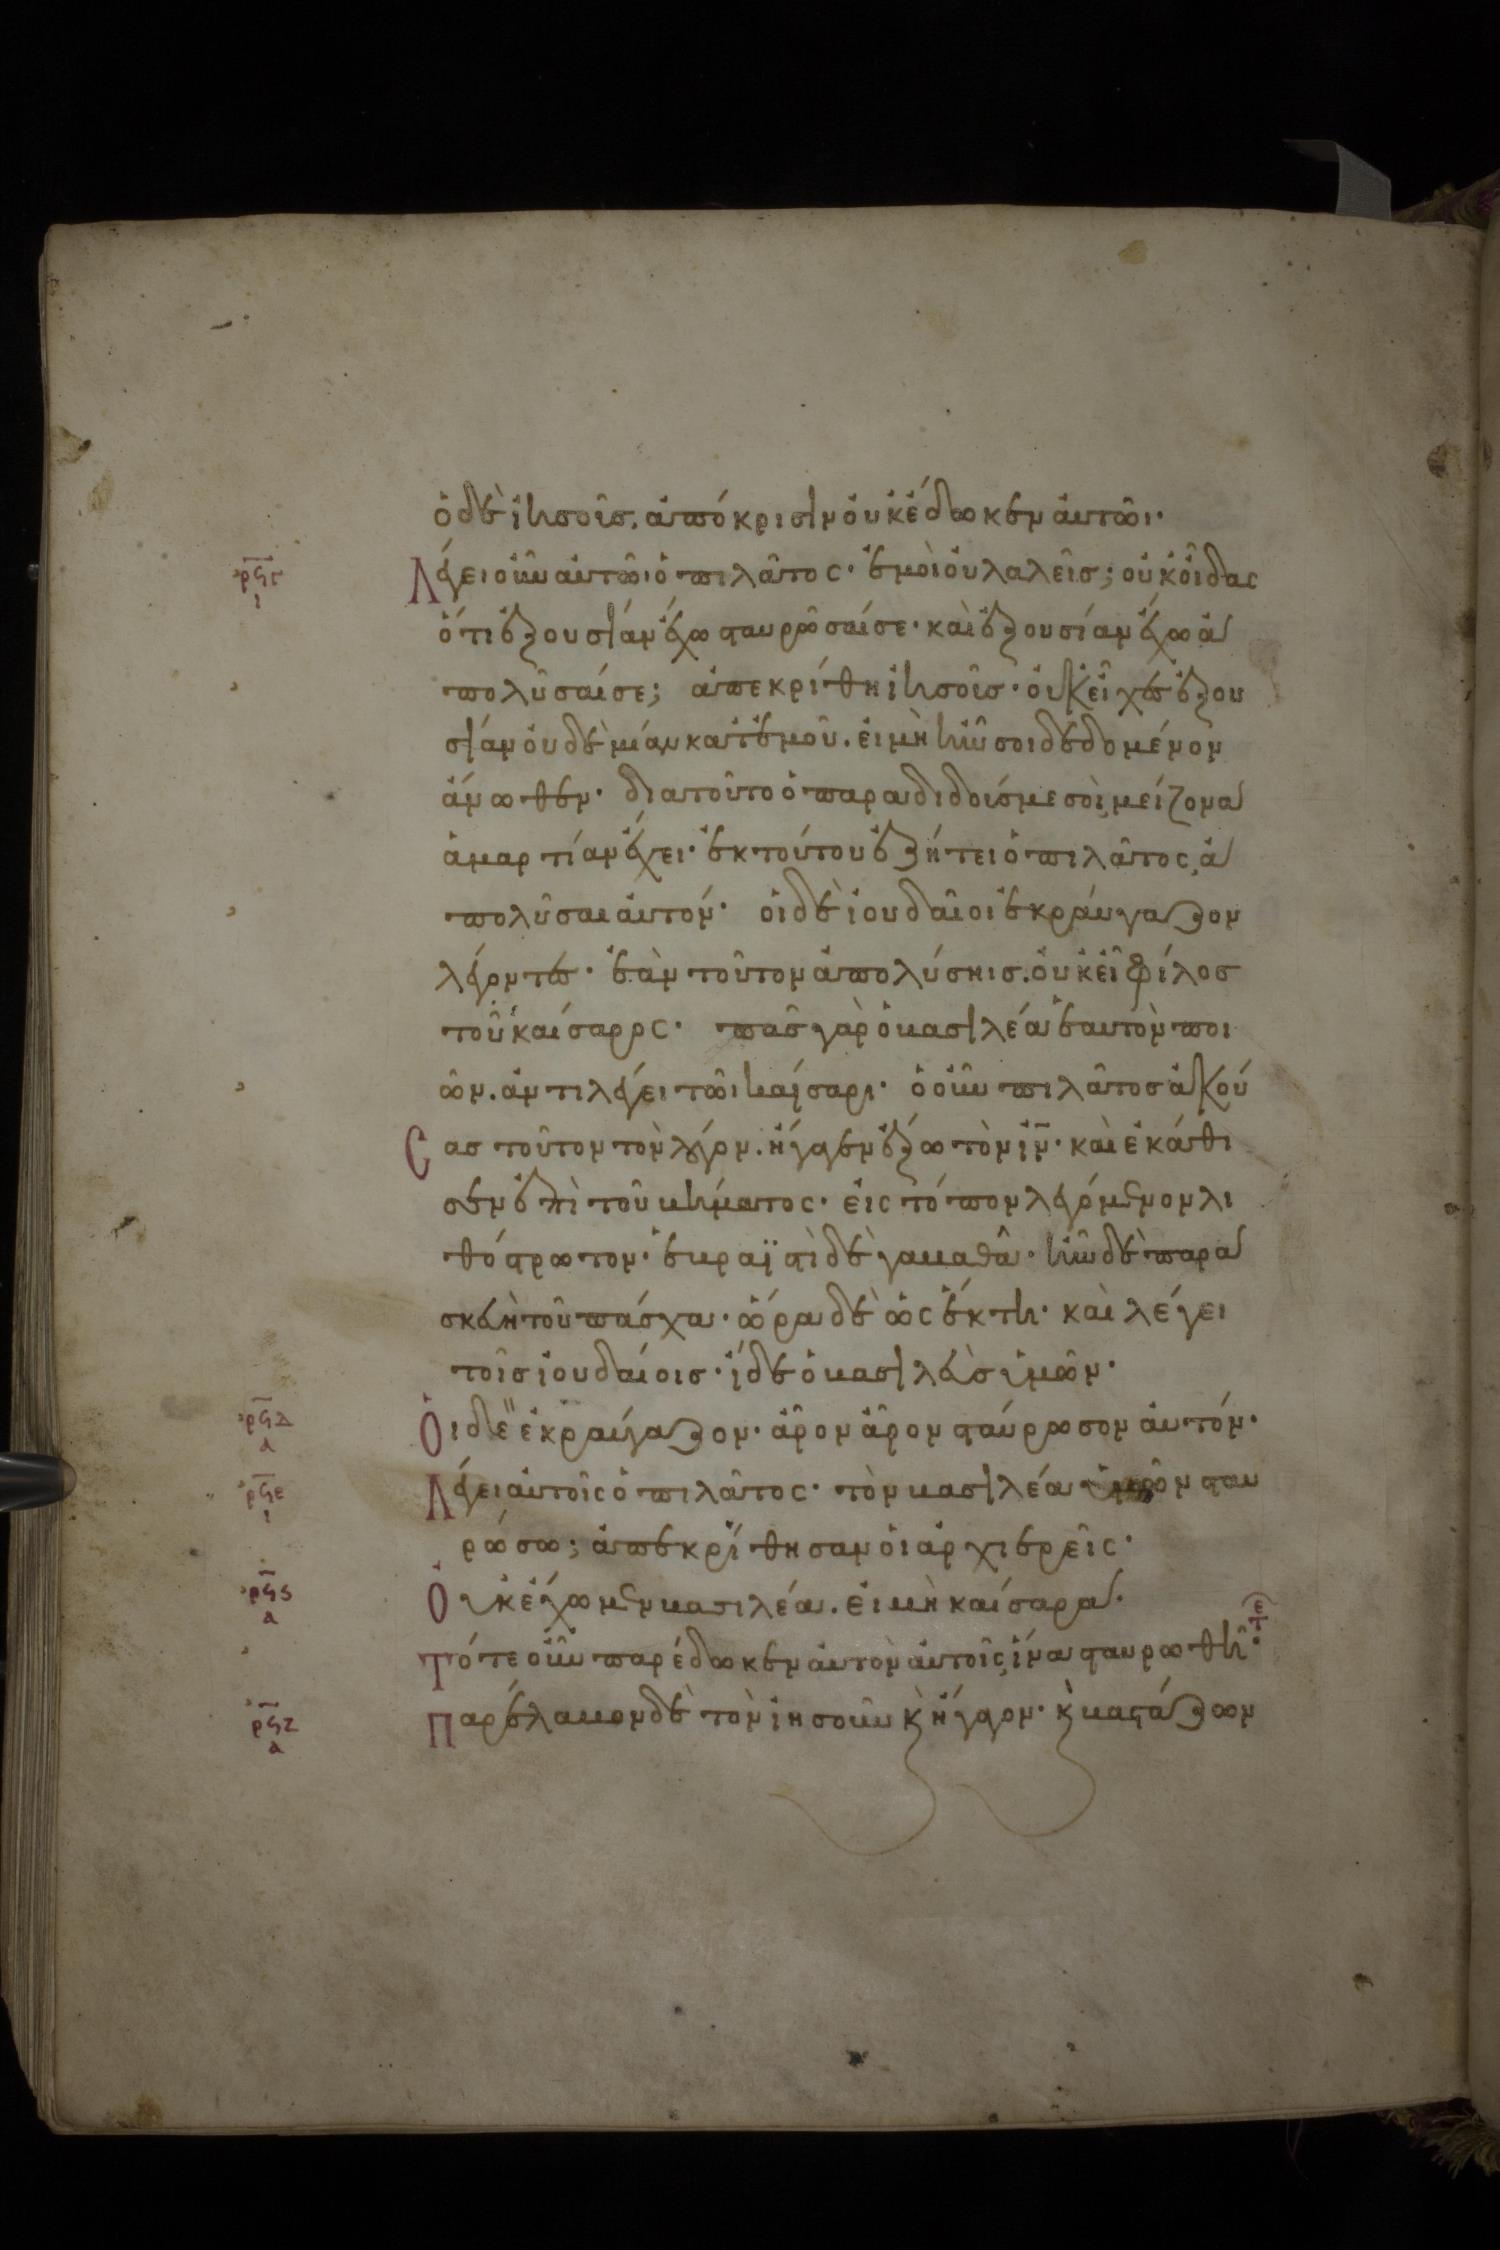 ὁ δὲ ἰησοῦς, ἀπόκρισιν οὐκ ἔδωκεν αὐτῶι·
ρϟγ ι Λέγει οὖν αὐτῶι ὁ πιλᾶτος· ἐμοὶ οὐ λαλεῖς; οὐκ οἶδας
ὅτι ἐξουσίαν ἔχω σταυρῶσαί σε· καὶ ἐξουσίαν ἔχω ἀ
πολῦσαί σε; ἀπεκρίθη ἰησοῦς· οὐκ εἶχες ἐξου
σίαν οὐδὲ μίαν κατ' ἐμοῦ. εἰ μὴ ἦν σοι δεδομένον
ἄνωθεν· διατοῦτο ὁ παραδιδούς με σοὶ, μείζονα
ἁμαρτίαν ἔχει· ἐκ τούτου ἐζήτει ὁ πιλᾶτος, ἀ
πολῦσαι αὐτόν· οἱ δὲ ἰουδαῖοι ἐκραύγαζον
λέγοντες· ἐὰν τοῦτον ἀπολύσηις. οὐκ εἶ φίλος
τοῦ καίσαρος· πᾶς γὰρ ὁ βασιλέα ἑαυτὸν ποι
ῶν. ἀντιλέγει τῶι καίσαρι· ὁ οὖν πιλᾶτος ἀκού
σας τοῦτον τὸν λόγον. ἤγαγεν ἔξω τὸν ἰν̄· καὶ ἐκάθι
σεν ἐπὶ τοῦ βήματος· εἰς τόπον λεγόμενον λι
θόστρωτον· ἑβραϊστὶ δὲ γαβαθᾶ· ἦν δὲ παρα
σκευὴ τοῦ πάσχα· ὥρα δὲ ὡς ἕκτη· καὶ λέγει
τοῖς ἰουδαίοις· ἴδε ὁ βασιλεὺς ὑμῶν·
ρϟδ α Οἱ δὲ ἐκραύγαζον· ἆρον ἆρον σταύρωσον αὐτόν·
ρϟε ι Λέγει αὐτοῖς ὁ πιλᾶτος· τὸν βασιλέα ὑμῶν σταυ
ρώσω; ἀπεκρίθησαν οἱ ἀρχιερεῖς·
ρϟς α Οὐκ ἔχωμεν βασιλέα. εἰ μὴ καίσαρα·
Τότε οὖν παρέδωκεν αὐτὸν αὐτοῖς, ἵνα σταυρωθῆ·
ρϟζ α Παρέλαβον δὲ τὸν ἰησοῦν κ̀ ἤγαγον· κ̀ βαστάζων